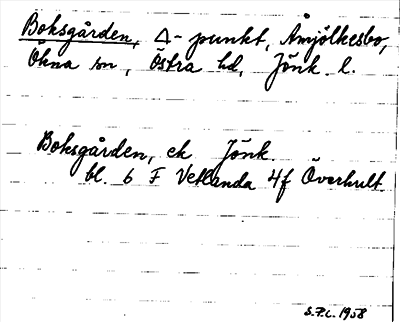 Boksgården, △-punkt, Åmjölkesbo,
Ökna sn, Östra hd, Jönk. l.
Boksgården, ek Jönk.
bl. 6 F Vetlanda 4f Överhult.
S.F.L. 1958